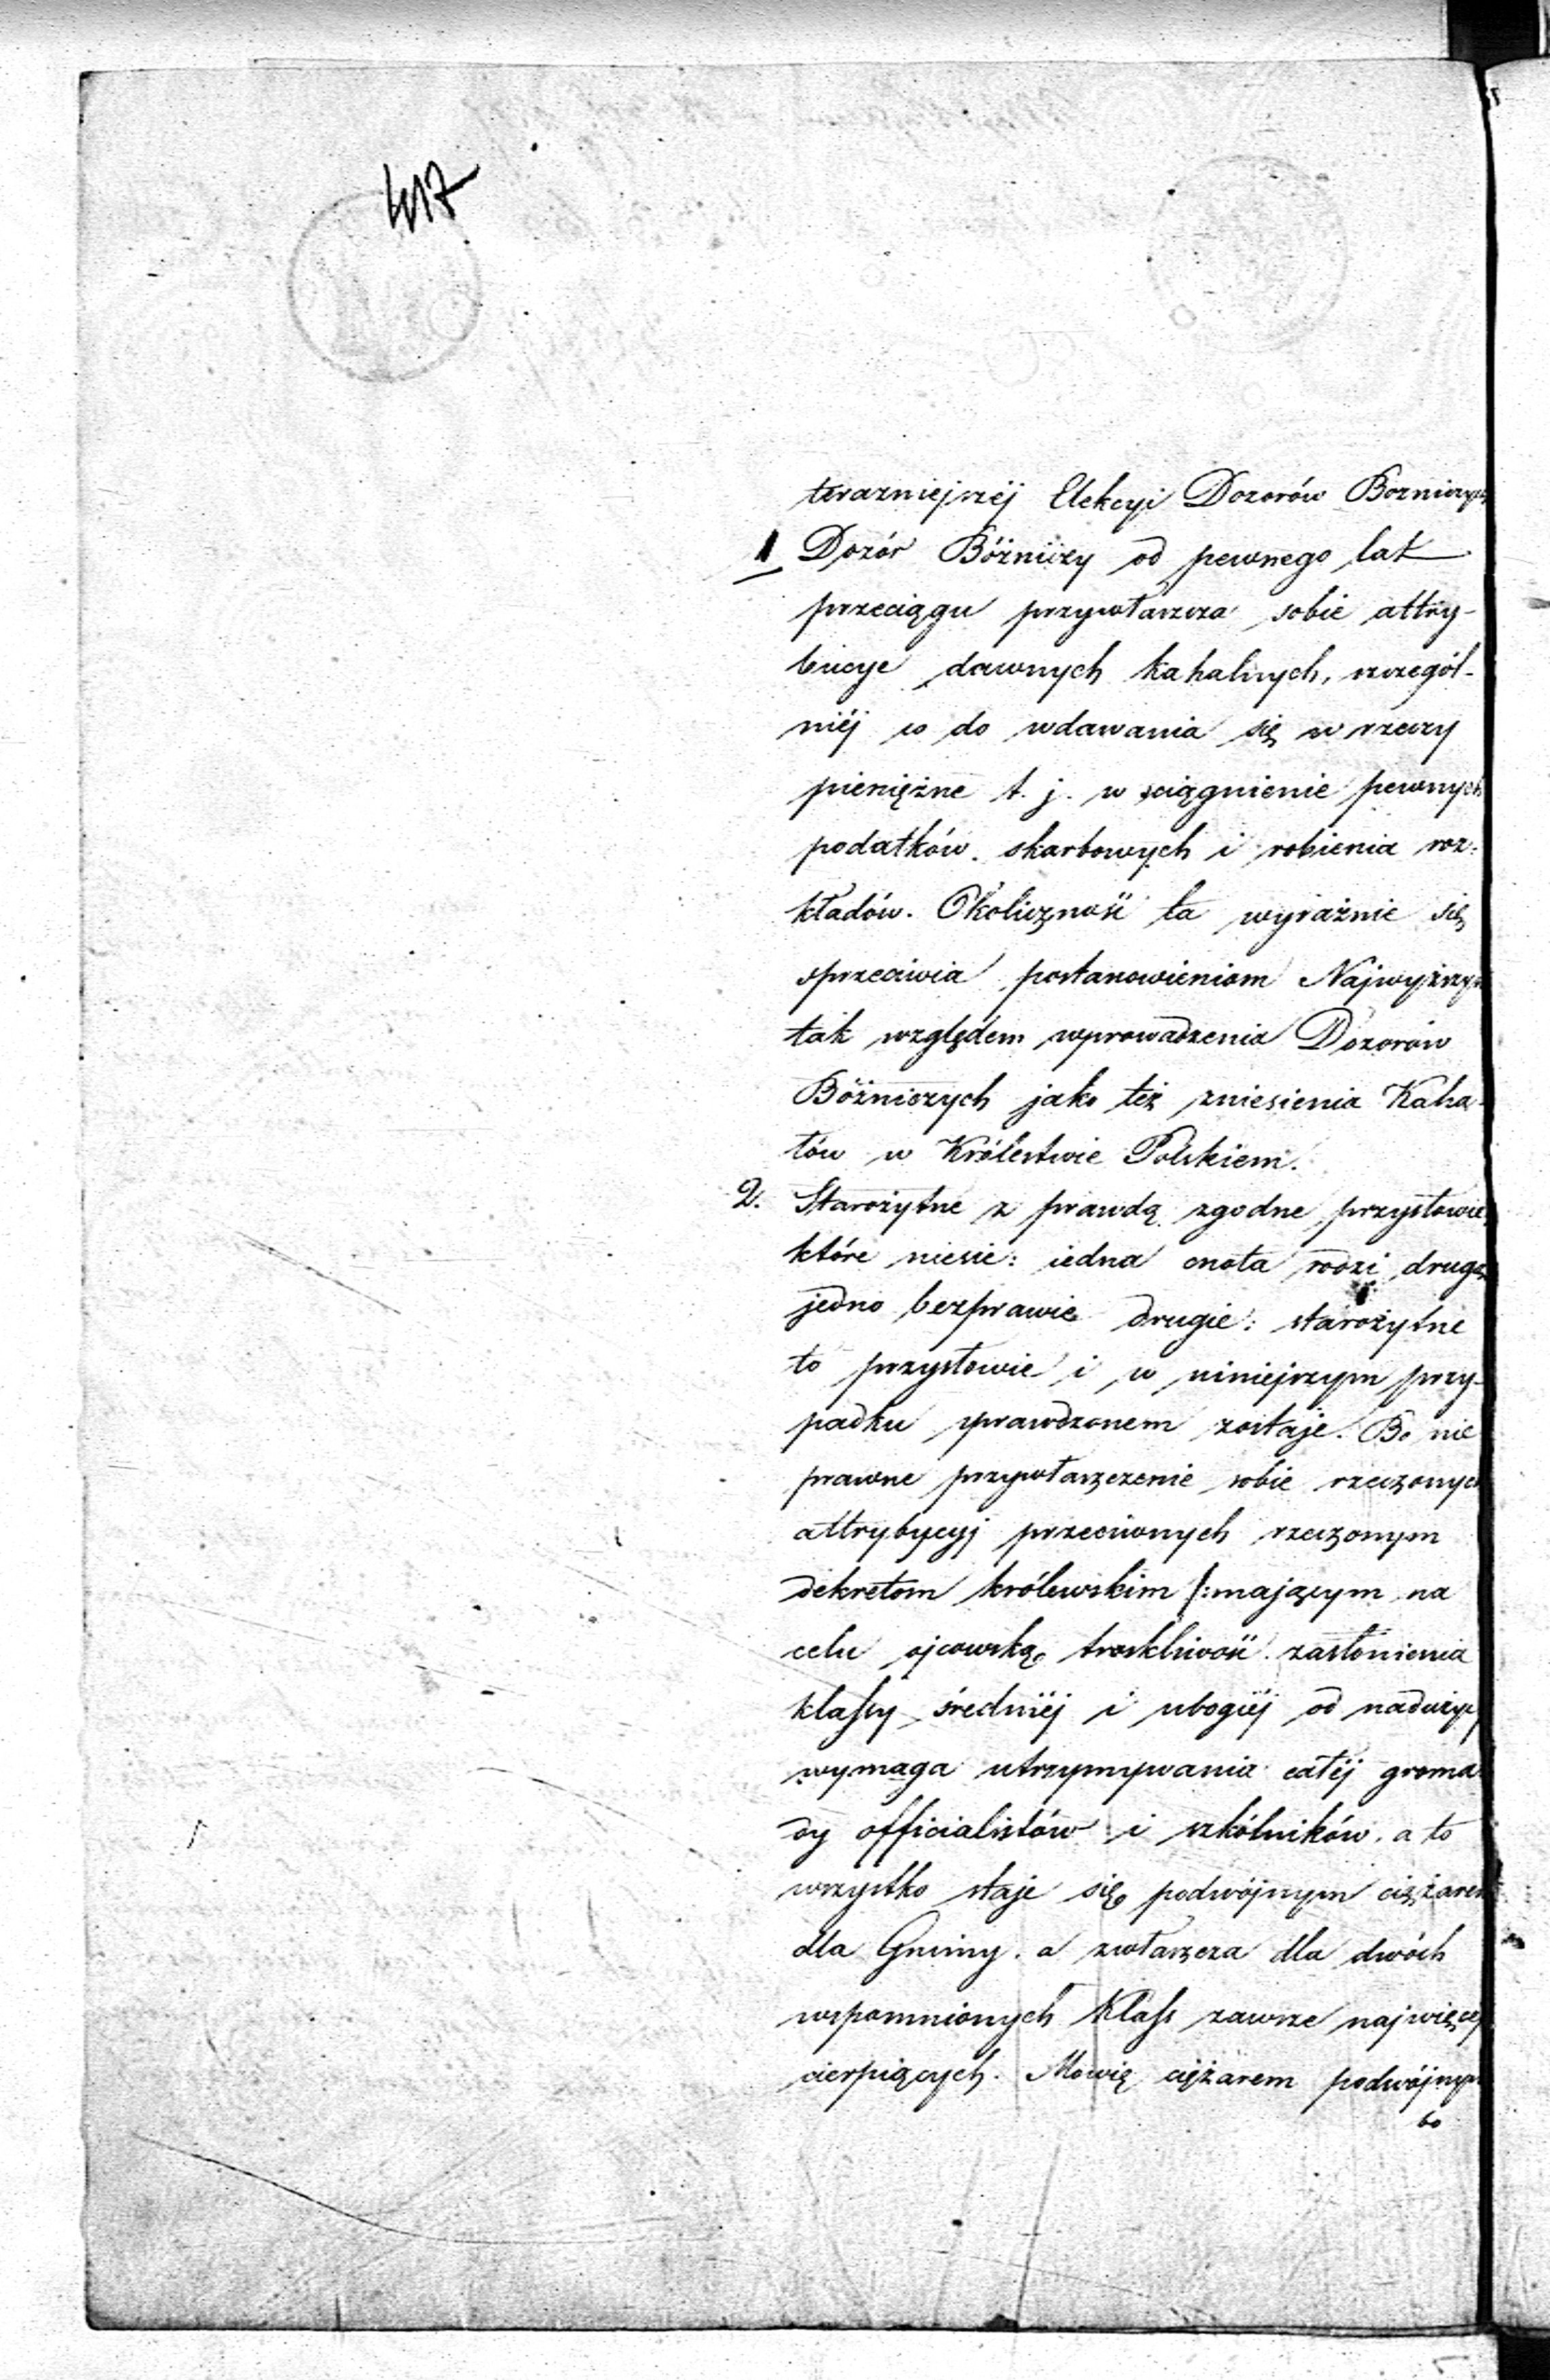 417
terazniejszéj Elekcyi Dozorów Bozniczych
1 Dozór Bóżniczy od pewnego lat
przeciągu przywłaszcza sobie attry-
bucye dawnych kahalnych, szczegól-
niéj co do wdawania się w rzeczy
pieniężne t. j. w ściągnienie pewnych
podatków skarbowych i robienia roz-
kładów. Okoliczność ta wyraźnie się
sprzeciwia postanowieniom Najwyższym
tak względem wprowadzenia Dozorów
Bóżniczych jako też zniesienia Kaha-
łów w Królestwie Polskiem.
2. Starożytne z prawdą zgodne przysłowie,
które niesie: iedna cnota rodzi drugą
jedno bezprawie drugie: starożytne
to przysłowie i w niniejszym przy-
padku sprawdzonem zostaje. Bo nie
prawne przywłaszczenie sobie rzeczonych
attrybycyj przeciwnych rzeczonym
dekretom królewskim /:mającym na
celu ojcowską troskliwość zasłonienia
klassy średniéj i ubogiéj od nadużyć
wymaga utrzymywania całéj groma
dy officialistów i szkólników, a to
wszystko staje się podwójnym ciężarem
dla Gminy, a zwłaszcza dla dwóch
wspomnionych Klass zawsze najwięcej
cierpiących. Mówię ciężarem podwójnym
bo